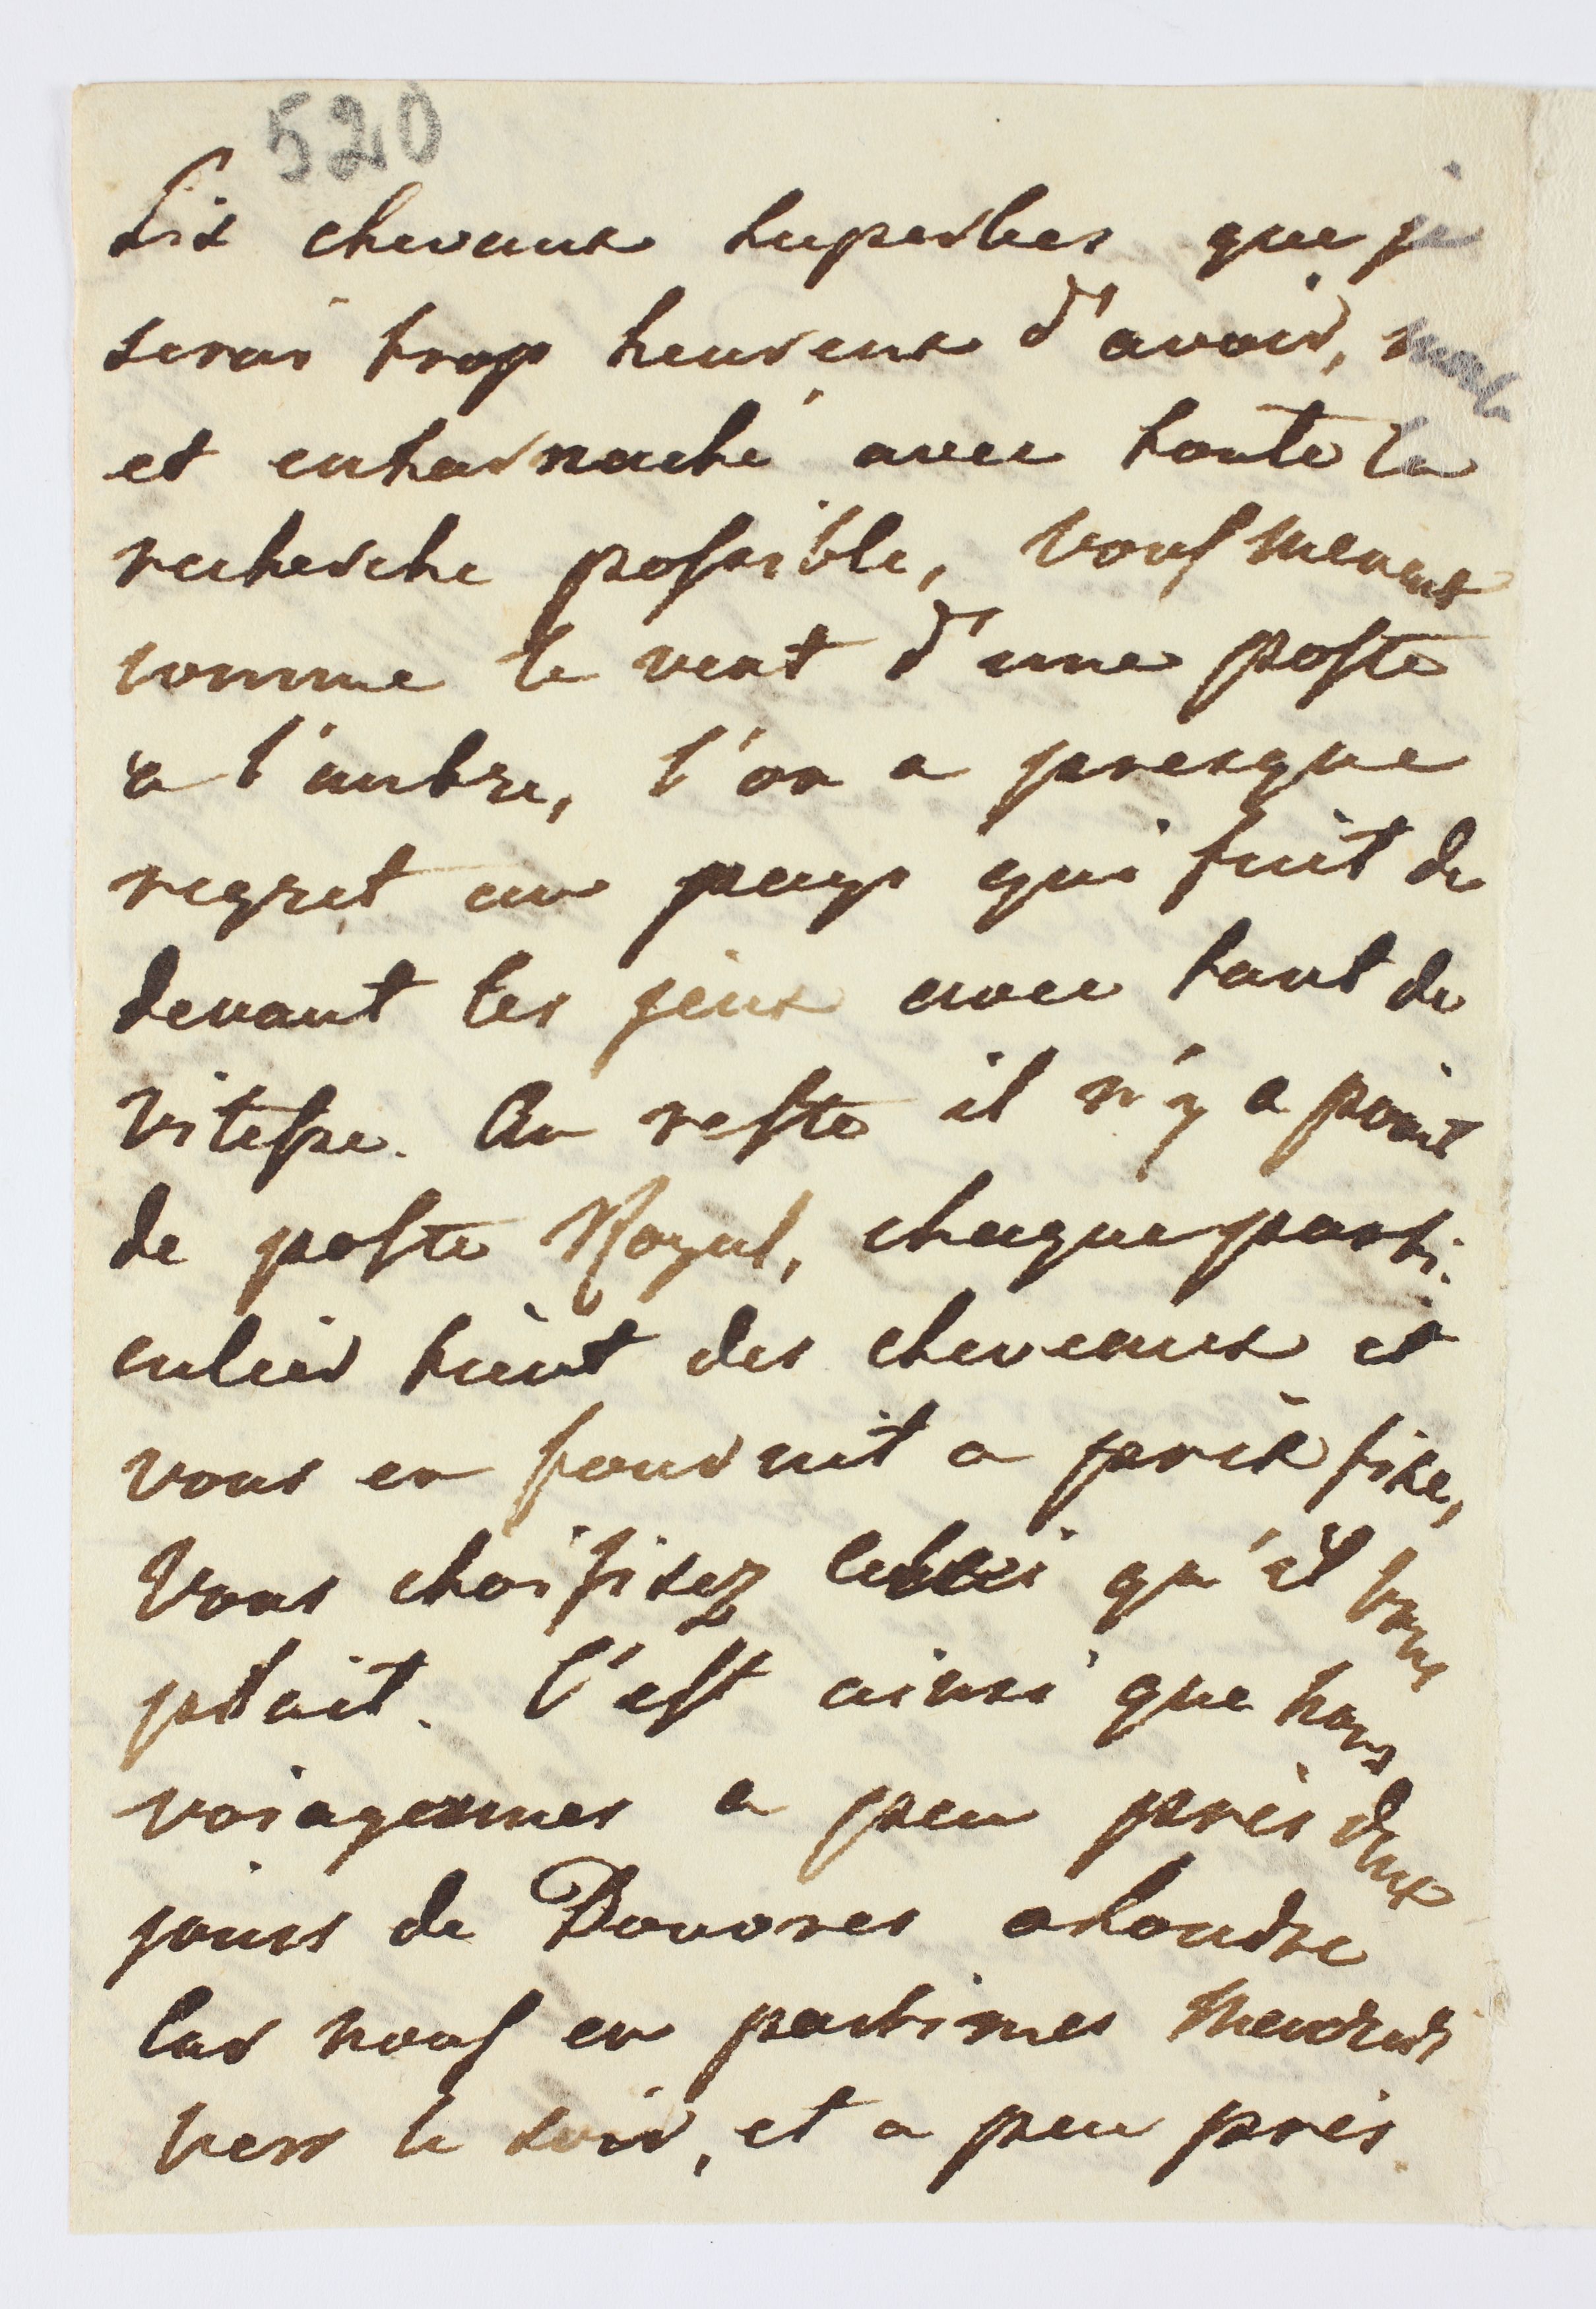 520
Six chevaux superbes que je
serai trop heureux d'avoir,
et enharnaché avec toute la
recherche possible, vous menent
comme le vent d'une poste
a l'autre, l'on a presque
regret au pays qui fuit de
devant les yeux avec tant de
vitesse. Au reste il n'y a point
de poste Royal, chaque parti-
culier tient des cheveaux et
vous en fournit a prix fixe,
vous choisisez celui qu'il vous
plait. C'est ainsi que nous
voiagemes a peu près deux
jours de Douvres a Londre
car nous en partimes mercredi
vers le soir, et a peu près